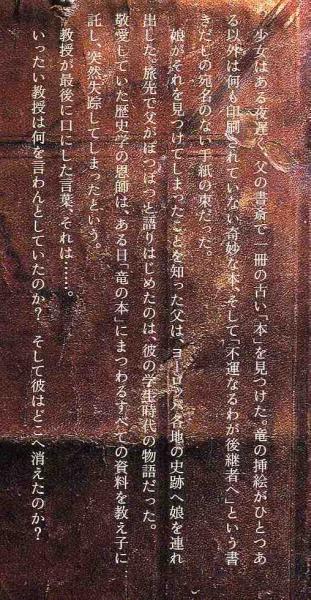 少女はある夜遅く、父の書斎で一冊の古い「本」を見つけた。竜の挿絵がひとつあ
る以外は何も印刷されていない奇妙な本、そして「不運なるわが後継者へ」という書
きだしの宛名のない手紙の束だった。
娘がそれを見つけてしまったことを知った父は、ヨーロッパ各地の史跡へ娘を連れ
出した。旅先で父がぽつぽつと語りはじめたのは、彼の学生時代の物語だった。
敬愛していた歴史学の恩師は、ある日「竜の本」にまつわるすべての資料を教え子に
託し、突然失踪してしまったという。
教授が最後に口にした言葉、それは……。
いったい教授は何を言わんとしていたのか？　そして彼はどこへ消えたのか？